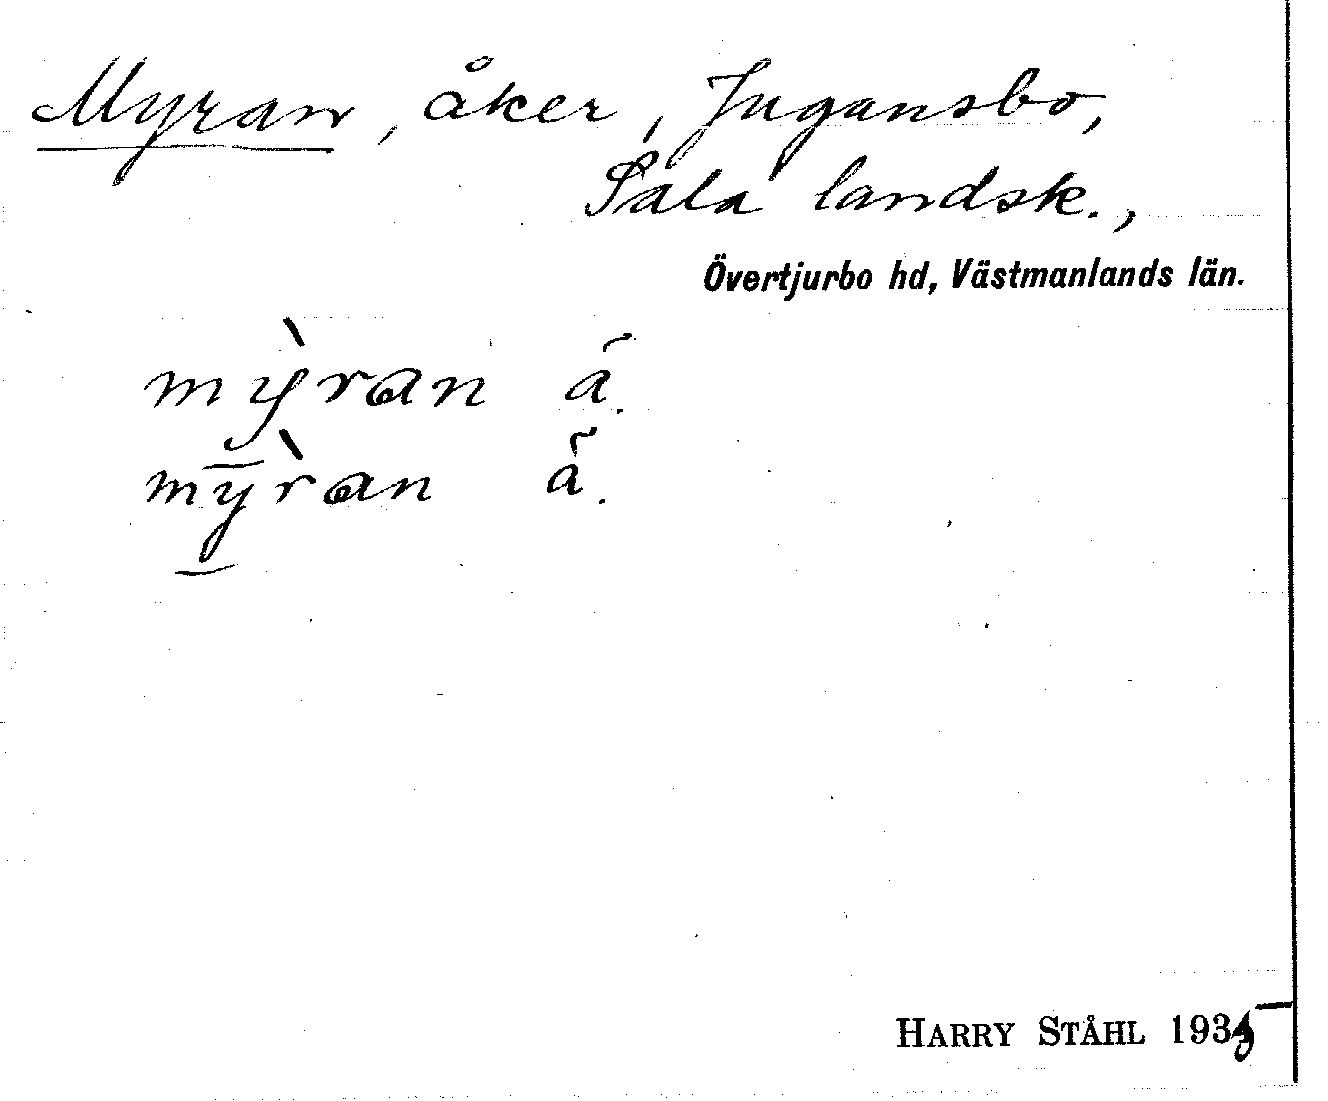 Myran, åker, Jugansbo,
Sala landsk.,
Övertjurbo hd, Västmanlands län.
mỳran å.
mȳ̀ran å.
HARRY STÅHL 1935